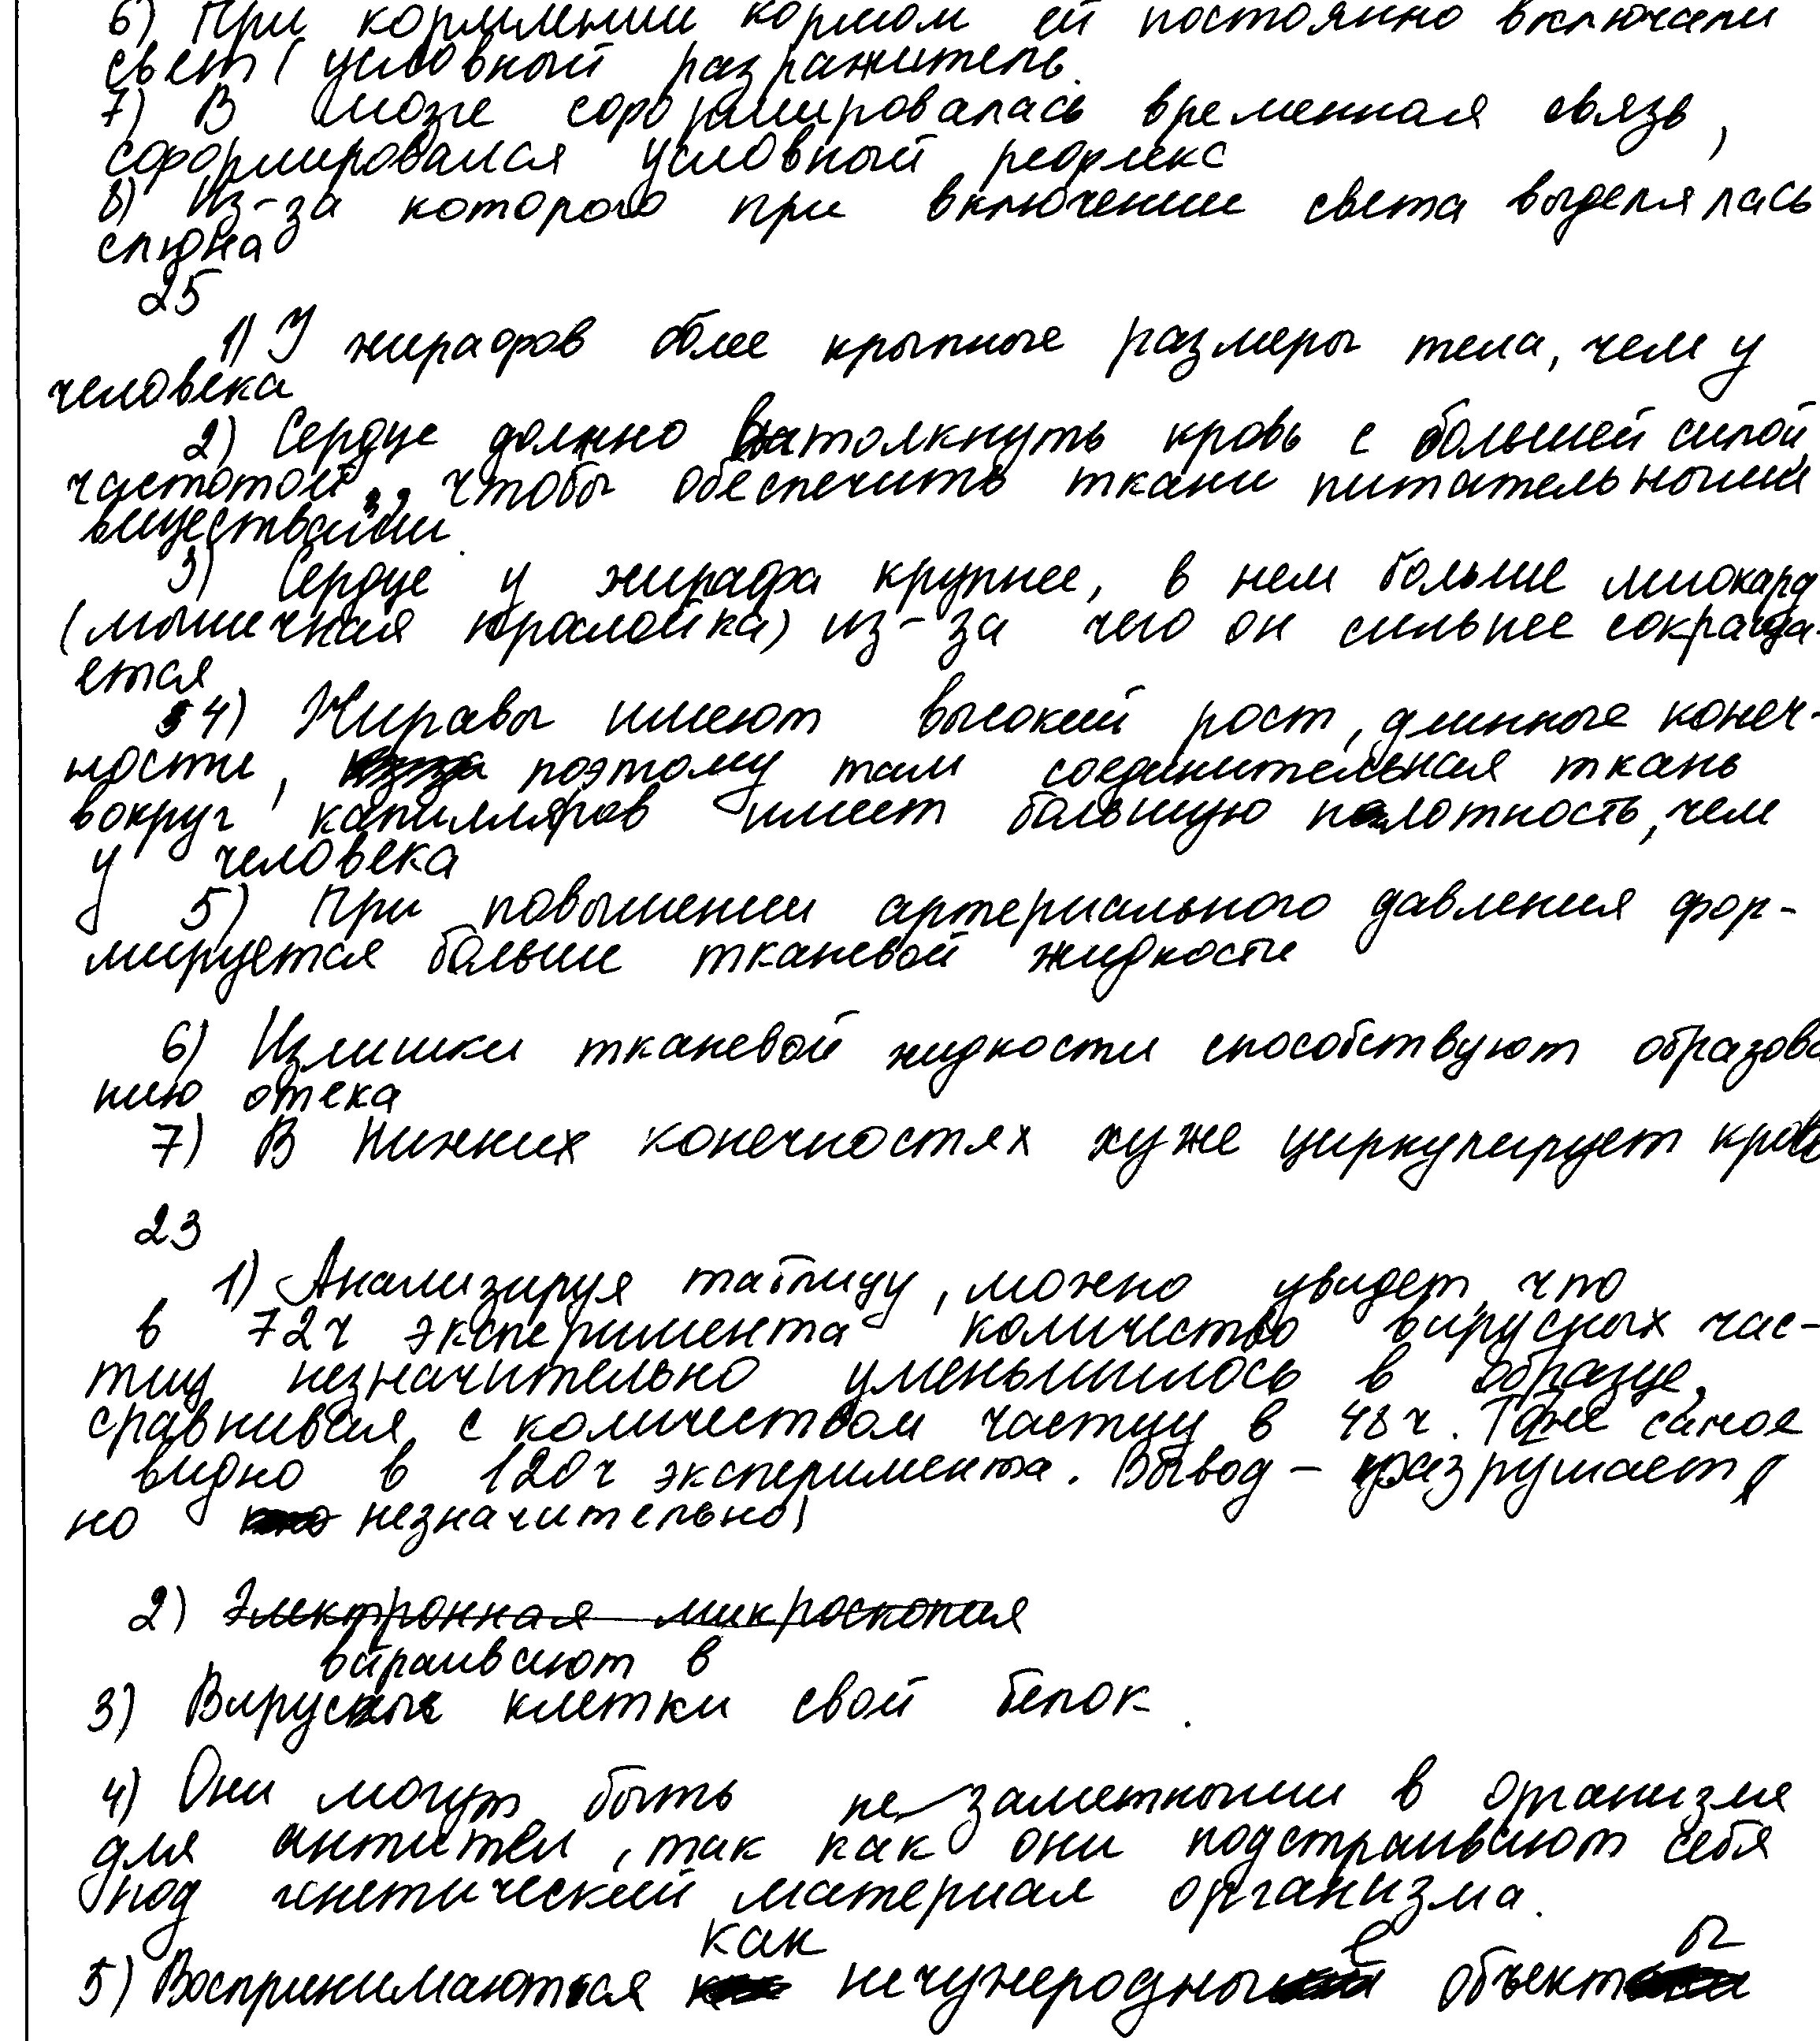 6) При кормлении кормом ей постоянно включали
свет (условный разражитель.
7) В мозге сформировалась временная связь,
сформировался условный рефлекс
8) Из-за которого при включении света выделялась
слюна
25
1) У жирафов более крыпные размеры тела, чем у
человека
2) Сердце должно втолкнуть кровь с большей силой,
частотой, чтобы обеспечить ткани питательными
виществами.
3) Сердце у жирафа крупнее, в нем больше миокард
(мышечная прослойка) из-за чего он сильнее сокраща-
ется
4) Жиравы имеют высокий рост, длинные конеч-
ности, поэтому там соединительная ткань
вокруг капилляров имеет большую плотность, чем
у человека
5) При повышении артериального давления фор-
мируется больше тканевой жидкости
6) Излишки тканевой жидкости способствуют образова
нию отека
7) В нижних конечностях хуже циркулирует кровь
23
1) Анализируя таблицу, можно увидет, что
в 72ч эксперимента количество вирусных час-
тиц незначительно уменьшилось в образце,
сравнивая с количеством частиц в 48ч. Тоже самое
видно в 120ч эксперимента. Вывод - разрушает,
но незначительно)
2) Электронная микроскопия
встраивают в
3) Вирусы клетки свой белок.
4) Они могут быть не заметными в организме
для антител, так как они подстраивают себя
под генетический материал организма.
как е ы
5) Воспринимаются нечужеродные объект